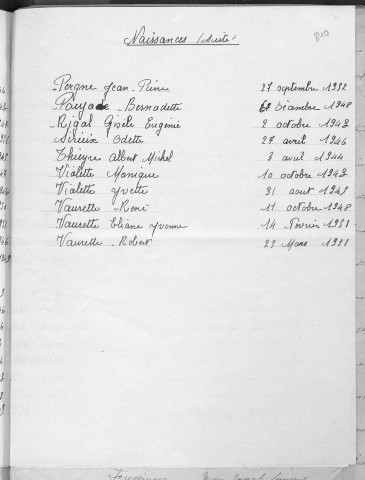 Naissances (suite)
Pergne Jean-Pierre 27 septembre 1952
Pouyade Bernadette décembre 1948
Rigal Gisèle Eugénie 2 octobre 1943
Odette 27 avril 1946
Thieyre Albert Michel 3 avril 1944
Violette Monique 10 octobre 1943
Violette Yvette 31 aout 1945
Vaurette René 11 octobre 1948
Vaurette Eliane Yvonne 14 Février 1951
Vaurette Robert 23 Mars 1951